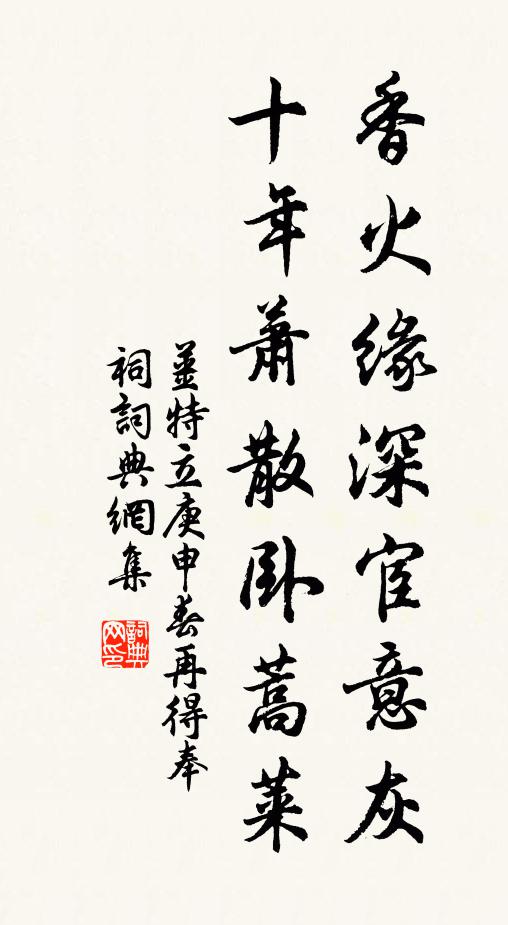 香火缘深宦意灰
十年萧散卧蒿莱
姜特立庚申春再得奉
祠詞典網集
詞典网印